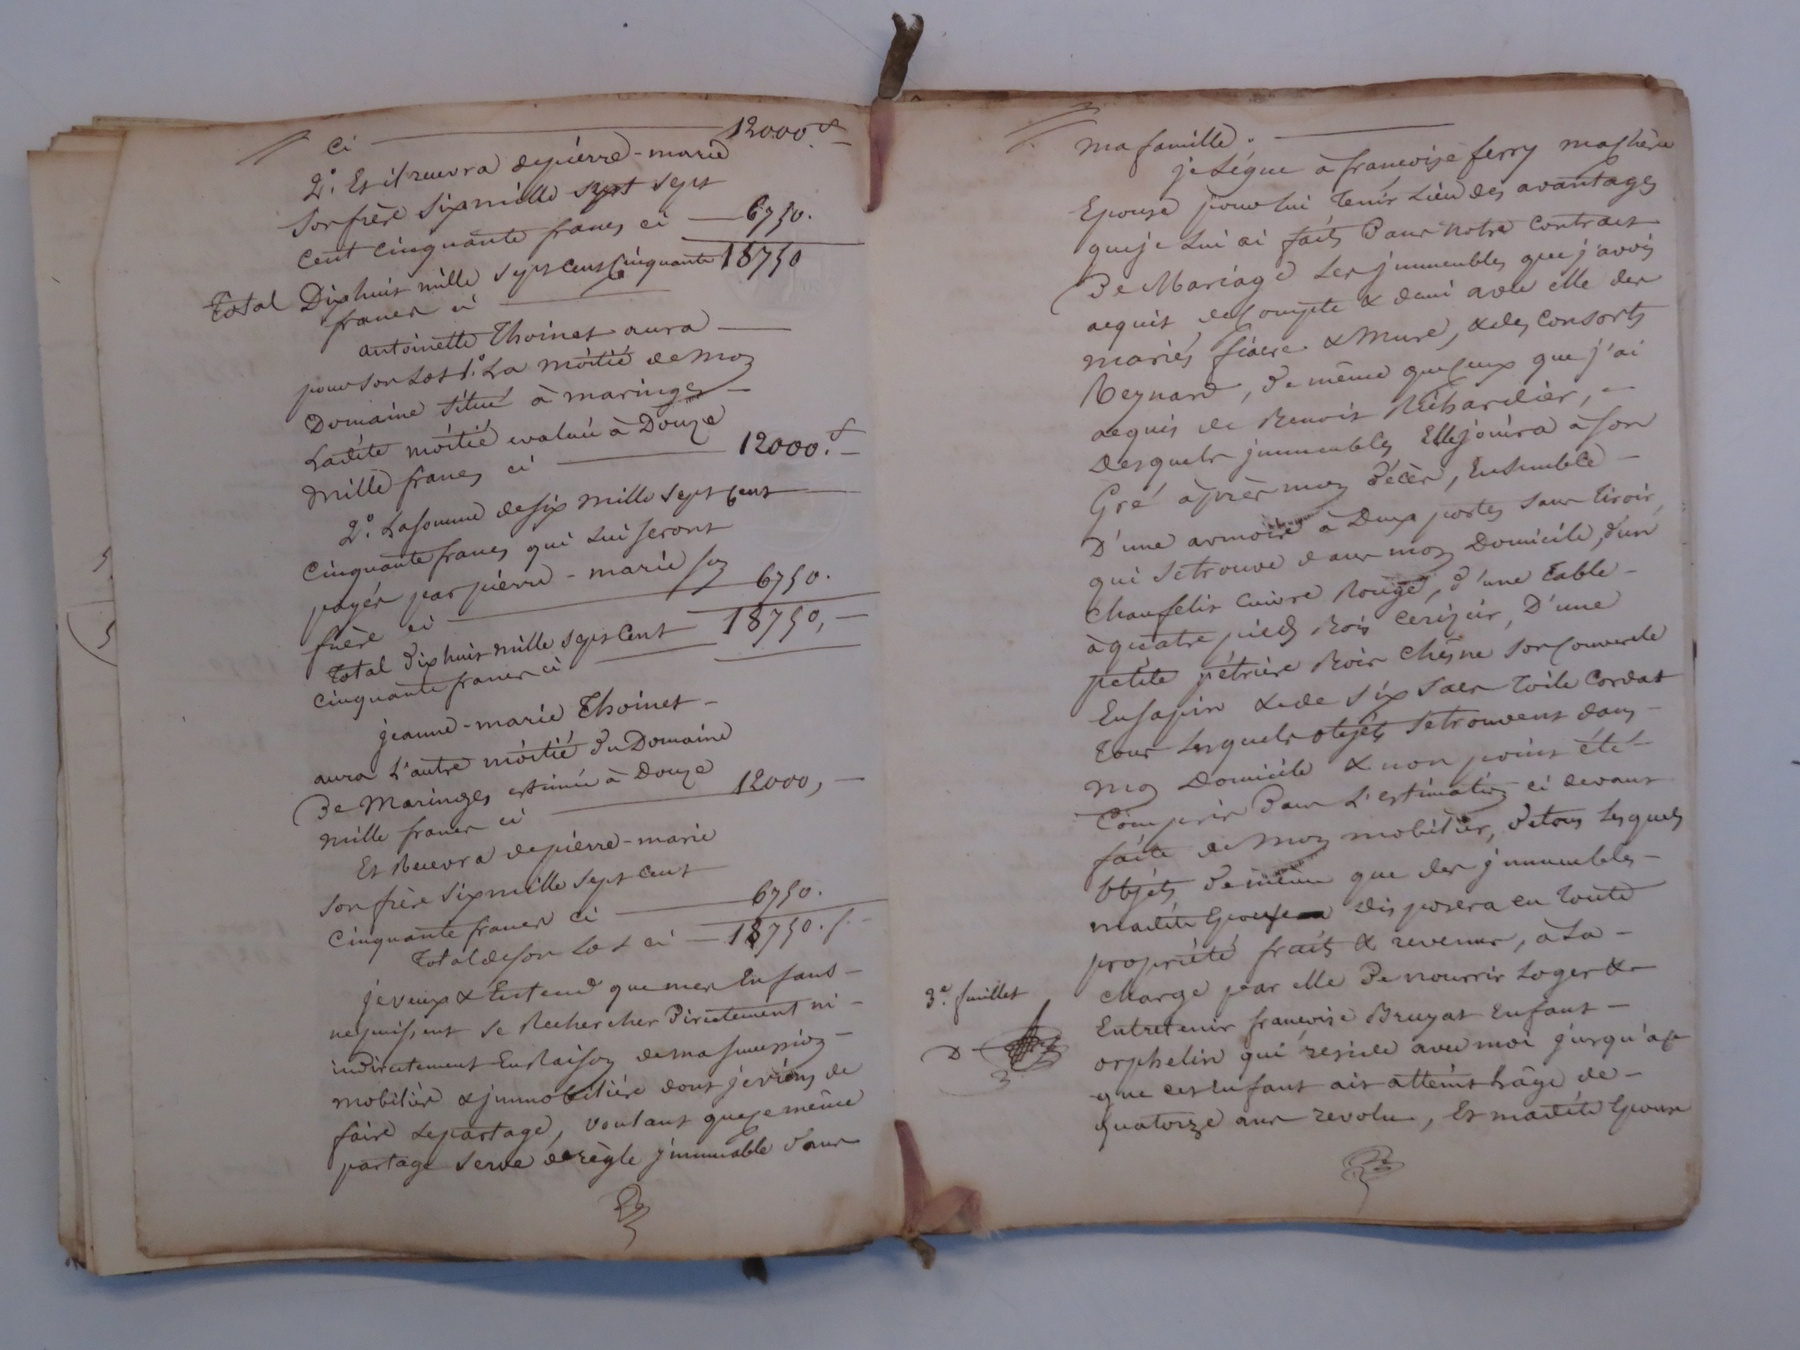 ci 12000.
2.° Et il recevra de pierre-marie
son frère six mille sept sept
cent cinquante francs ci 6750.
Total Dix huit mille sept cent cinquante 18750
francs ci
antoinette Thoinet aura
pour son Lot 1.° La môitié de mon
Domaine situé à maringes
Ladite môitié evaluée à Douze
mille francs ci 12000.
2.° La somme de six mille sept cent
cinquante francs qui Lui seront
payés par pierre-marie son
frère ci 6750.
Total dix huit mille sept Cent 18750,
cinquante francs ci
jeanne-marie Thoinet
aura L'autre môitié du Domaine
De Maringes estimée à Douze
mille francs ci 12000,
Et Recevra de pierre-marie
son frère six mille sept cent
cinquante francs ci 6750.
Total de son Lot ci 18750. f.
je veux & Entend que mes Enfans
ne puissent se Rechercher Directement ni
indirectement En Raison de ma succession
mobilière & jmmobilière dont je viens de
faire Le partage, voulant que ce même
partage serve de règle jmmuable dans
ma famille.
je Lègue à francoise ferry ma chère
Epouse pour lui Tenir Lieu des avantages
que je Lui ai faits Dans notre contrat
De Mariage Les jmmeubles que j'avois
acquis de Compte & demi avec elle des
mariés fiacre & Mure, & des consorts
Reynard, de même que ceux que j'ai
acquis de Benoit Richardier,
Desquels jmmeubles Elle jouira à son
Gré après mon décès, Ensemble
D'une armoire à Deux portes sans tiroir,
qui se trouve dans mon Domicile, d'un
chauffelit cuivre Rouge, d'une Table
à quatre pieds Bois Cerizier, D'une
petite pétrière Bois chêne son Couvercle
En sapin & de six sacs Toile Cordat
Tous Lesquels objets se trouvent dans
mon Domicile & non point été
Compris Dans L'estimation ci devant
faite de Mon mobilier, de tous Lesquels
objets de même que des jmmeubles
madite Epouse disposera en Toute
propriété fruits & revenus, à La
charge par elle De nourrir Loger &
3.e feuillet
Entretenir francoise Bruyat Enfant
orphelin qui réside avec moi jusqu'à ce
que cet enfant ait atteint L'âge de
quatorze ans revolu, Et madite Epouse